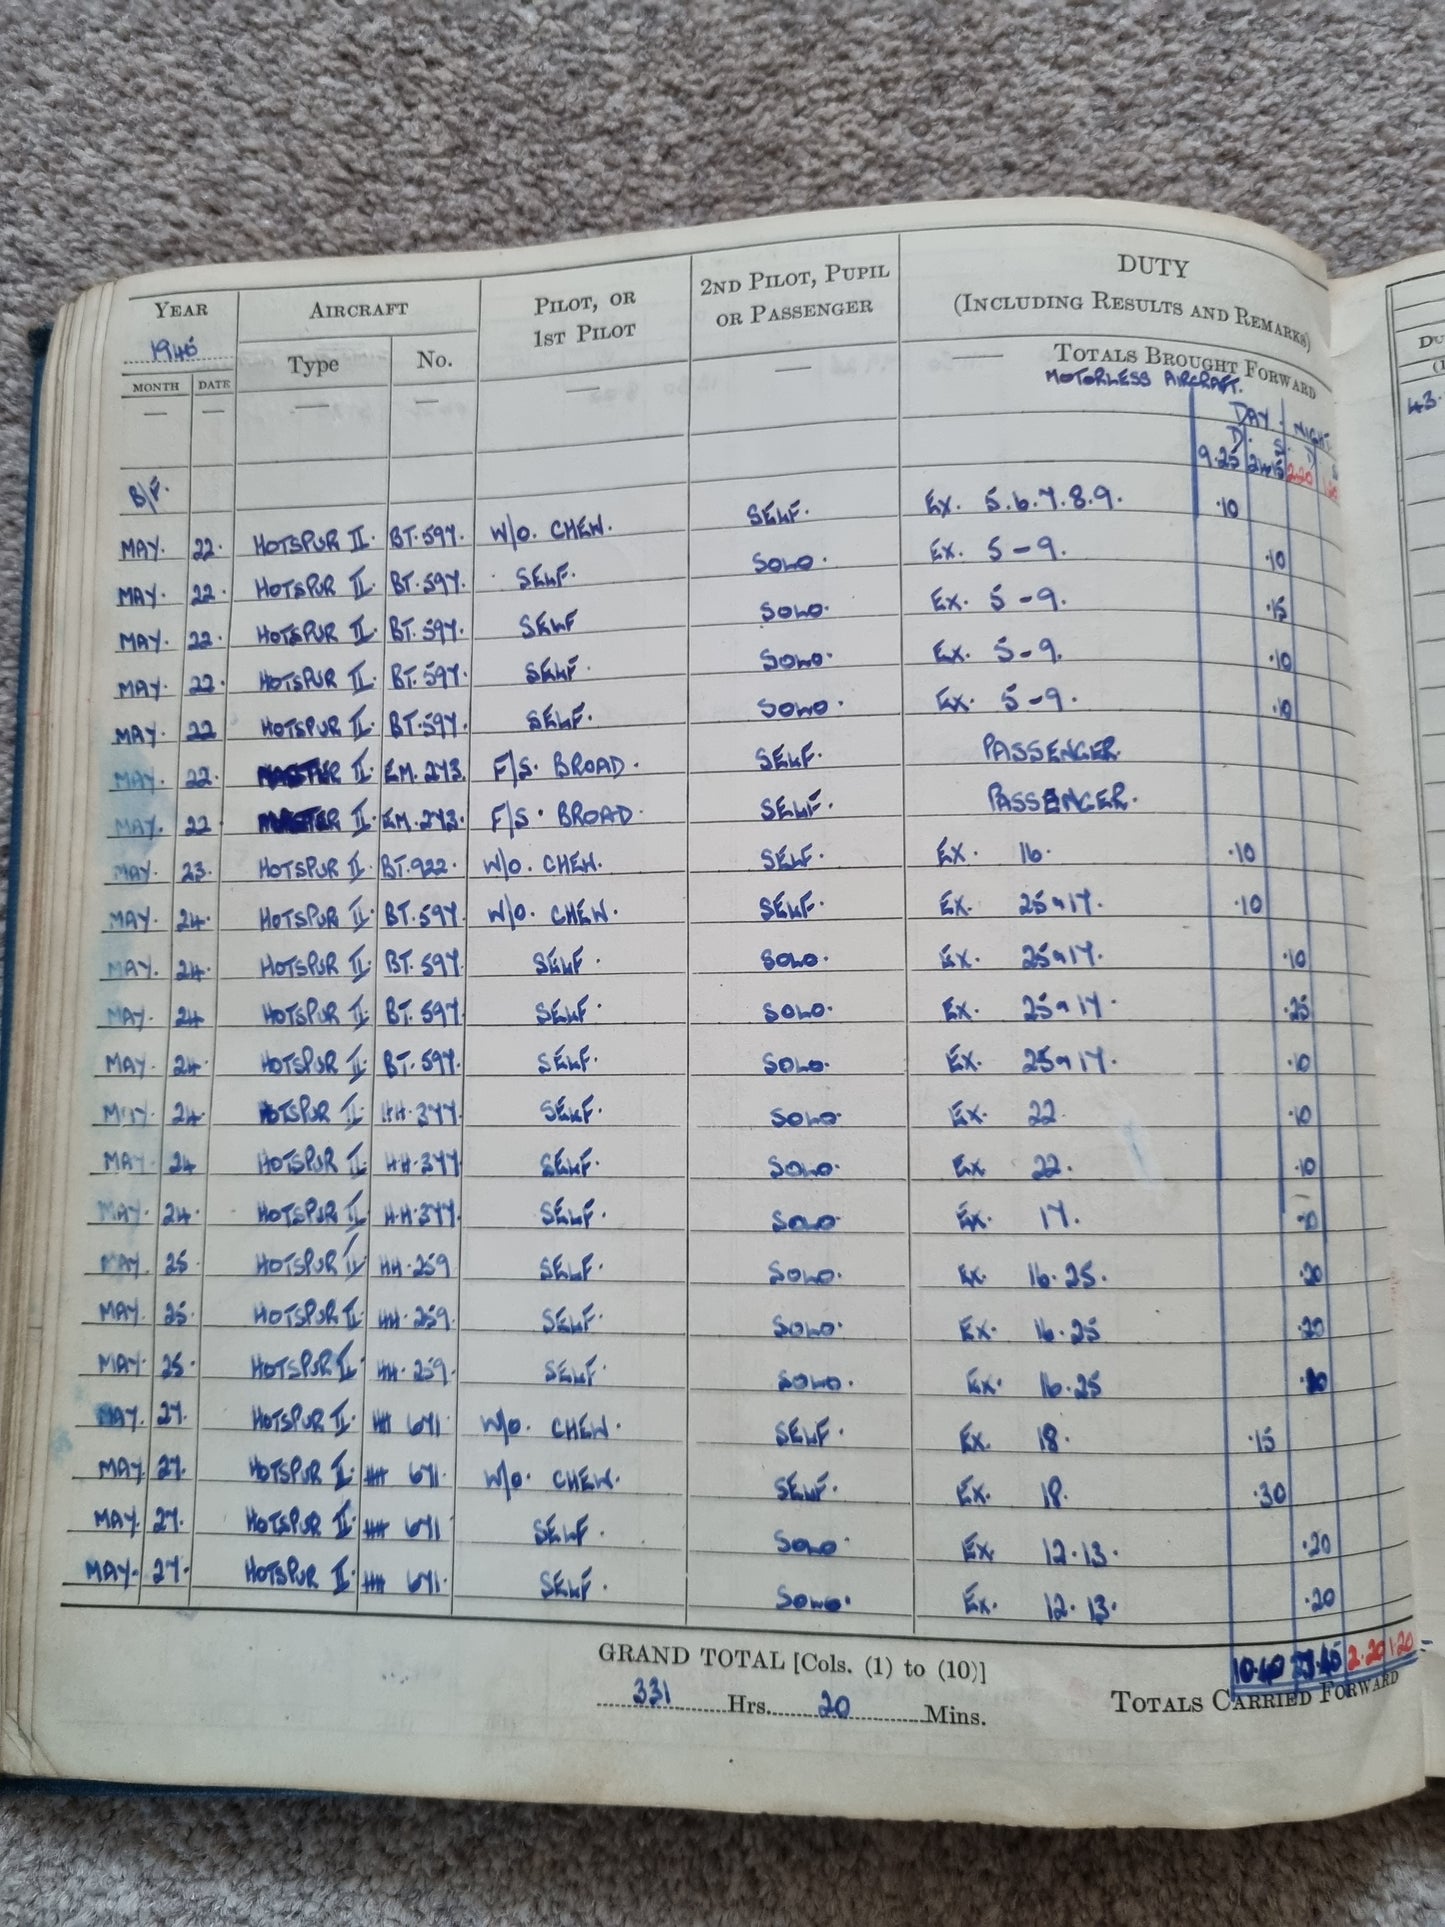 YEAR AIRCRAFT PILOT, OR 1ST PILOT 2ND PILOT, PUPIL OR PASSENGER DUTY (INCLUDING RESULTS AND REMARKS)
Type No.
MONTH DATE
— — — — — — —
TOTALS BROUGHT FORWARD
MOTORLESS AIRCRAFT.
DAY. NIGHT.
D. S. D
B/F. 9.25 2.20
MAY. 22. HOTSPUR II. BT.597. W/O. CHEW. SELF. EX. 5.6.7.8.9. .10
MAY. 22. HOTSPUR II. BT.597. SELF. SOLO. EX. 5-9. .10
MAY. 22. HOTSPUR II. BT.597. SELF SOLO. EX. 5-9. .15
MAY. 22. HOTSPUR II. BT.597. SELF. SOLO. EX. 5-9. .10
MAY. 22 HOTSPUR II. BT.597. SELF. SOLO. EX. 5-9. .10
MAY. 22. MASTER II. EM.273. F/S. BROAD. SELF. PASSENGER.
MAY. 22 MASTER II. EM.273. F/S. BROAD. SELF. PASSENGER.
MAY. 23. HOTSPUR II. BT.922. W/O. CHEW. SELF. EX. 16. .10
MAY. 24. HOTSPUR II. BT.597. W/O. CHEW. SELF. EX. 25 17. .10
MAY. 24. HOTSPUR II. BT.597. SELF. SOLO. EX. 25 17. .10
MAY. 24 HOTSPUR II. BT.597. SELF. SOLO. EX. 25 17. .25
MAY. 24. HOTSPUR II. BT.597. SELF. SOLO. EX. 25 17. .10
MAY. 24. HOTSPUR II. HH.377. SELF. SOLO. EX. 22. .10
MAY. 24 HOTSPUR II. HH.377. SELF. SOLO. EX. 22. .10
MAY. 24. HOTSPUR II. HH.377. SELF. SOLO. EX. 17.
MAY. 25 HOTSPUR II. HH.259 SELF. SOLO. EX. 16.25. .20
MAY. 25. HOTSPUR II. HH.259. SELF. SOLO. EX. 16.25 .20
MAY. 25. HOTSPUR II. HH.259. SELF. SOLO. EX. 16.25
MAY. 27. HOTSPUR II. HH 671. W/O. CHEW. SELF. EX. 18. .15
MAY. 27. HOTSPUR II. HH 671. W/O. CHEW. SELF. EX. 18. .30
MAY. 27. HOTSPUR II. HH 671 SELF. SOLO. EX. 12.13. .20
MAY. 27. HOTSPUR II. HH 671. SELF. SOLO. EX. 12.13. .20
GRAND TOTAL [Cols. (1) to (10)] 10.40 2.20 1.20
331 Hrs. 20 Mins. TOTALS CARRIED FORWARD
43.